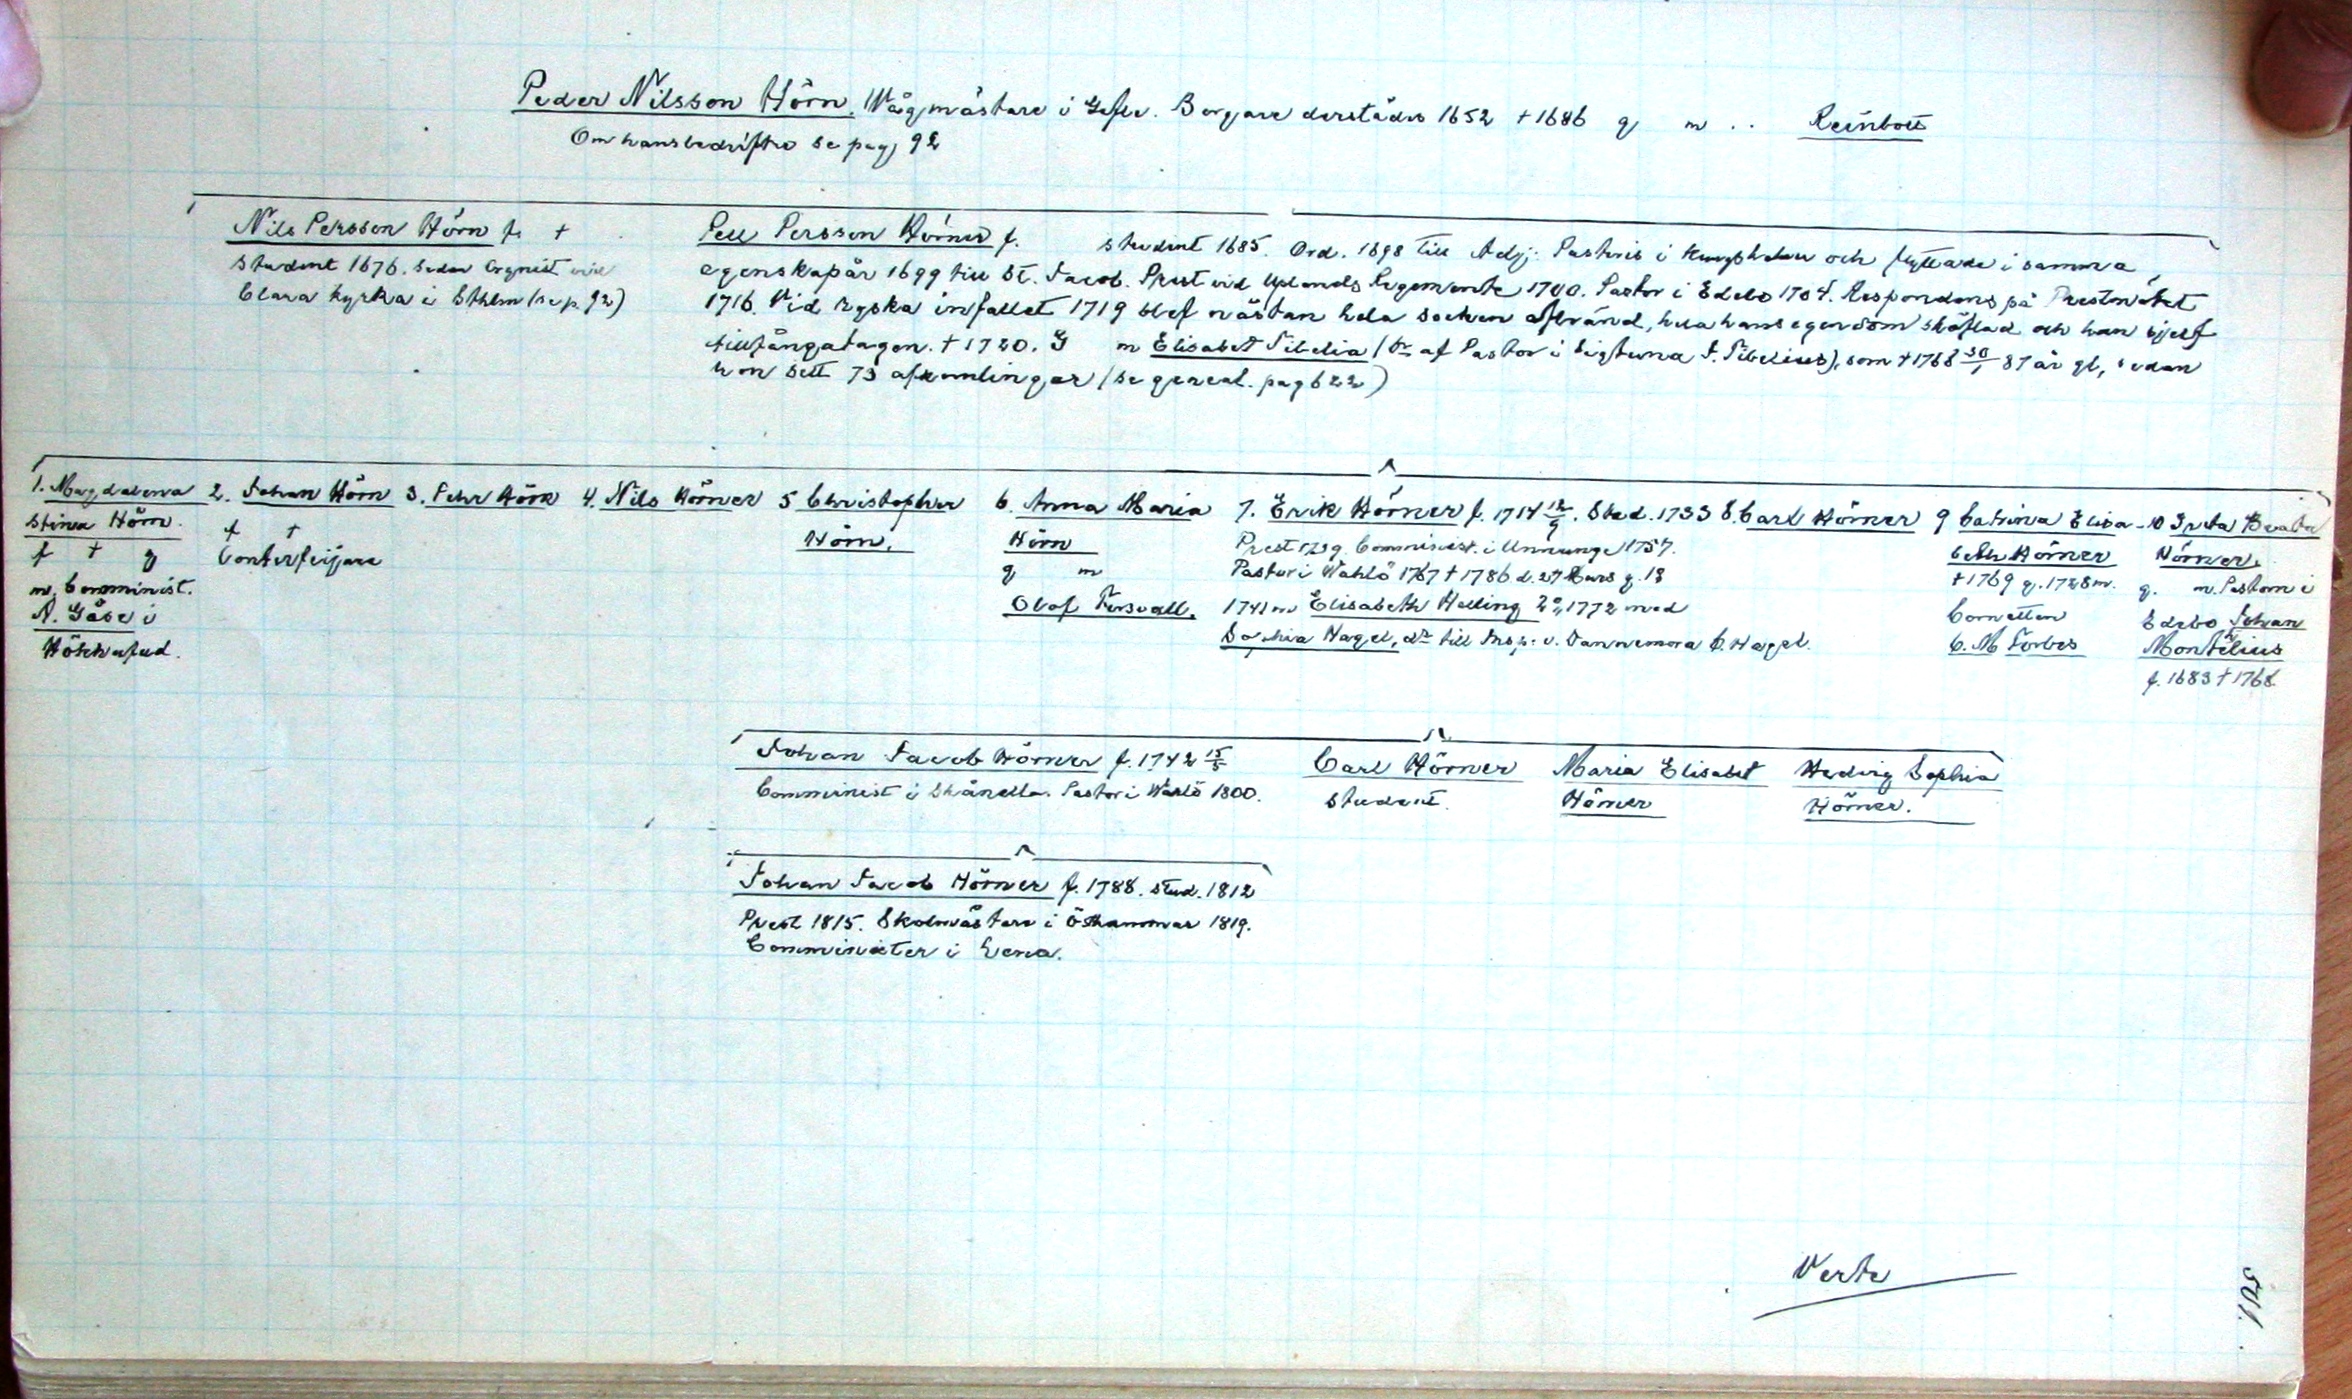 Peder Nilsson Hörn. Wågmästare i Gefle. Borgare derstädes 1652 † 1686 g m .. Reinbott
Om hans bedrifter se pag 92
Nils Persson Hörn f. †
Student 1676. Sedan Organist vid
Clara kyrka i Sthlm (se p. 92)
Pell Persson Hörner f. student 1685. Ord. 1698 till Adj. Pastoris i och flyttade i samma
egenskap år 1699 till St. Jacob. Prest vid Uplands Regemente 1700. Pastor i Edebo 1704. Respondens på Prestmötet
1716. Vid ryska infallet 1719 blef nästan hela socken afbränd, hela hans egendom sköflad och han sjelf
tillfångatagen. † 1720. G m Elisabet Tibelia (dr af Pastor i Sigtuna T. Tibelius), som † 1768 30/1 87 år gl, sedan
hon sett 73 afkomlingar (se geneal. pag 622)
1. Magdalena
Stina Hörn.
f † g
m. Comminist.
N. Gåse i
Hökhufud.
2. Johan Hörn
f †
Conterfeijare
3. Pehr Hörn
4. Nils Hörner
5 Christopher
Hörn.
6. Anna Maria
Hörn
g m
Olof Tersvall.
7. Erik Hörner f. 1714 12/9. Stud. 1733
Prest 1739. Comminist. i Unnunge 1757.
Pastor i Wahlö 1767 † 1786 d. 27 Mars g. 1º
1741 m Elisabeth Helling 2º, 1772 med
Sophia Nagel, dr till Insp. v. Dannemora C. Nagel.
8. Carl Hörner
9 Catrina Elisa-
beth Hörner
† 1769 g. 1728 m.
Cornetten
C. M Forbes
10 Greta Beata
Hörner.
g. m. Pastorn i
Edebo Johan
Monthelius
f. 1683 † 1768
Johan Jacob Hörner f. 1742 15/5
Comminist i Skånella. Pastor i Wahlö 1800.
Carl Hörner
Student.
Maria Elisabet
Hörner
Hedvig Sophia
Hörner.
Johan Jacob Hörner f. 1788. stud. 1812
Prest 1815. Skolmästare i Östhammar 1819.
Comminister i Lena.
Verte
501.